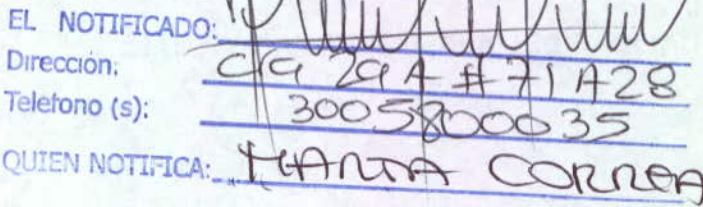 EL NOTIFICADO:
Dirección: Cra 29A #71A28
Telefono (s): 3005800035
QUIEN NOTIFICA: MARTA CORREA